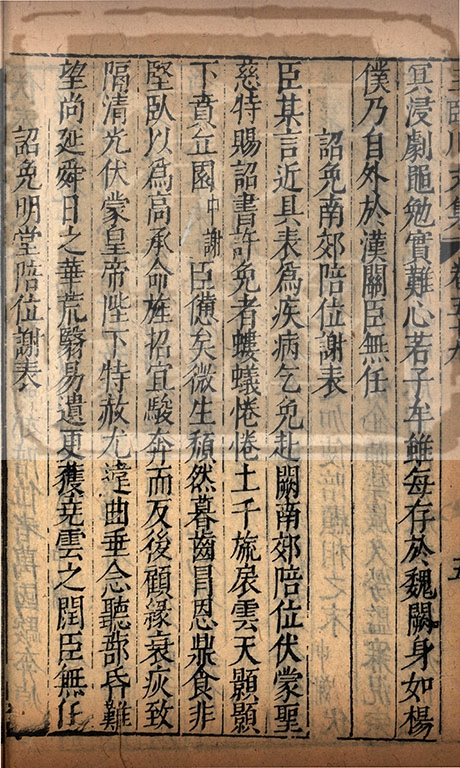 王臨川文集 卷五十九 五
冥浸劇黽勉實難心若子牟雖每存於魏闕身如楊
僕乃自外於漢關臣無任
詔免南郊陪位謝表
臣某言近具表爲疾病乞免赴闕南郊陪位伏蒙聖
慈特賜詔書許免者螻蟻惓惓土千旒扆雲天顥顥
下賁丘園中謝臣備矣微生頽然暮齒冒恩鼎食非
堅臥以爲高承命旌招宜駿奔而反後顧緣衰疢致
隔清光伏蒙皇帝陛下特赦尤違曲垂念聽蔀昏難
望尚延舜日之華荒翳易遺更獲堯雲之潤臣無任
詔免明堂陪位謝表